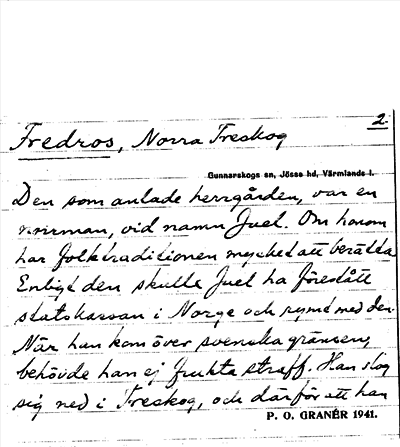 2.
Fredros, Norra Treskog
Gunnarskogs sn, Jösse hd, Värmlands l.
Den som anlade herrgården, var en
norrman, vid namn Juel. Om honom
har folktraditionen mycket att berätta
Enligt den skulle Juel ha förestått
statskassan i Norge och rymt med den.
När han kom över svenska gränsen,
behövde han ej frukta straff. Han slog
sig ned i Treskog, och därför att han
P. O. GRANÉR 1941.